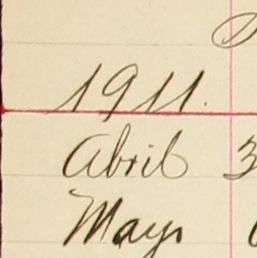 1911.
Abril 3
Mayo